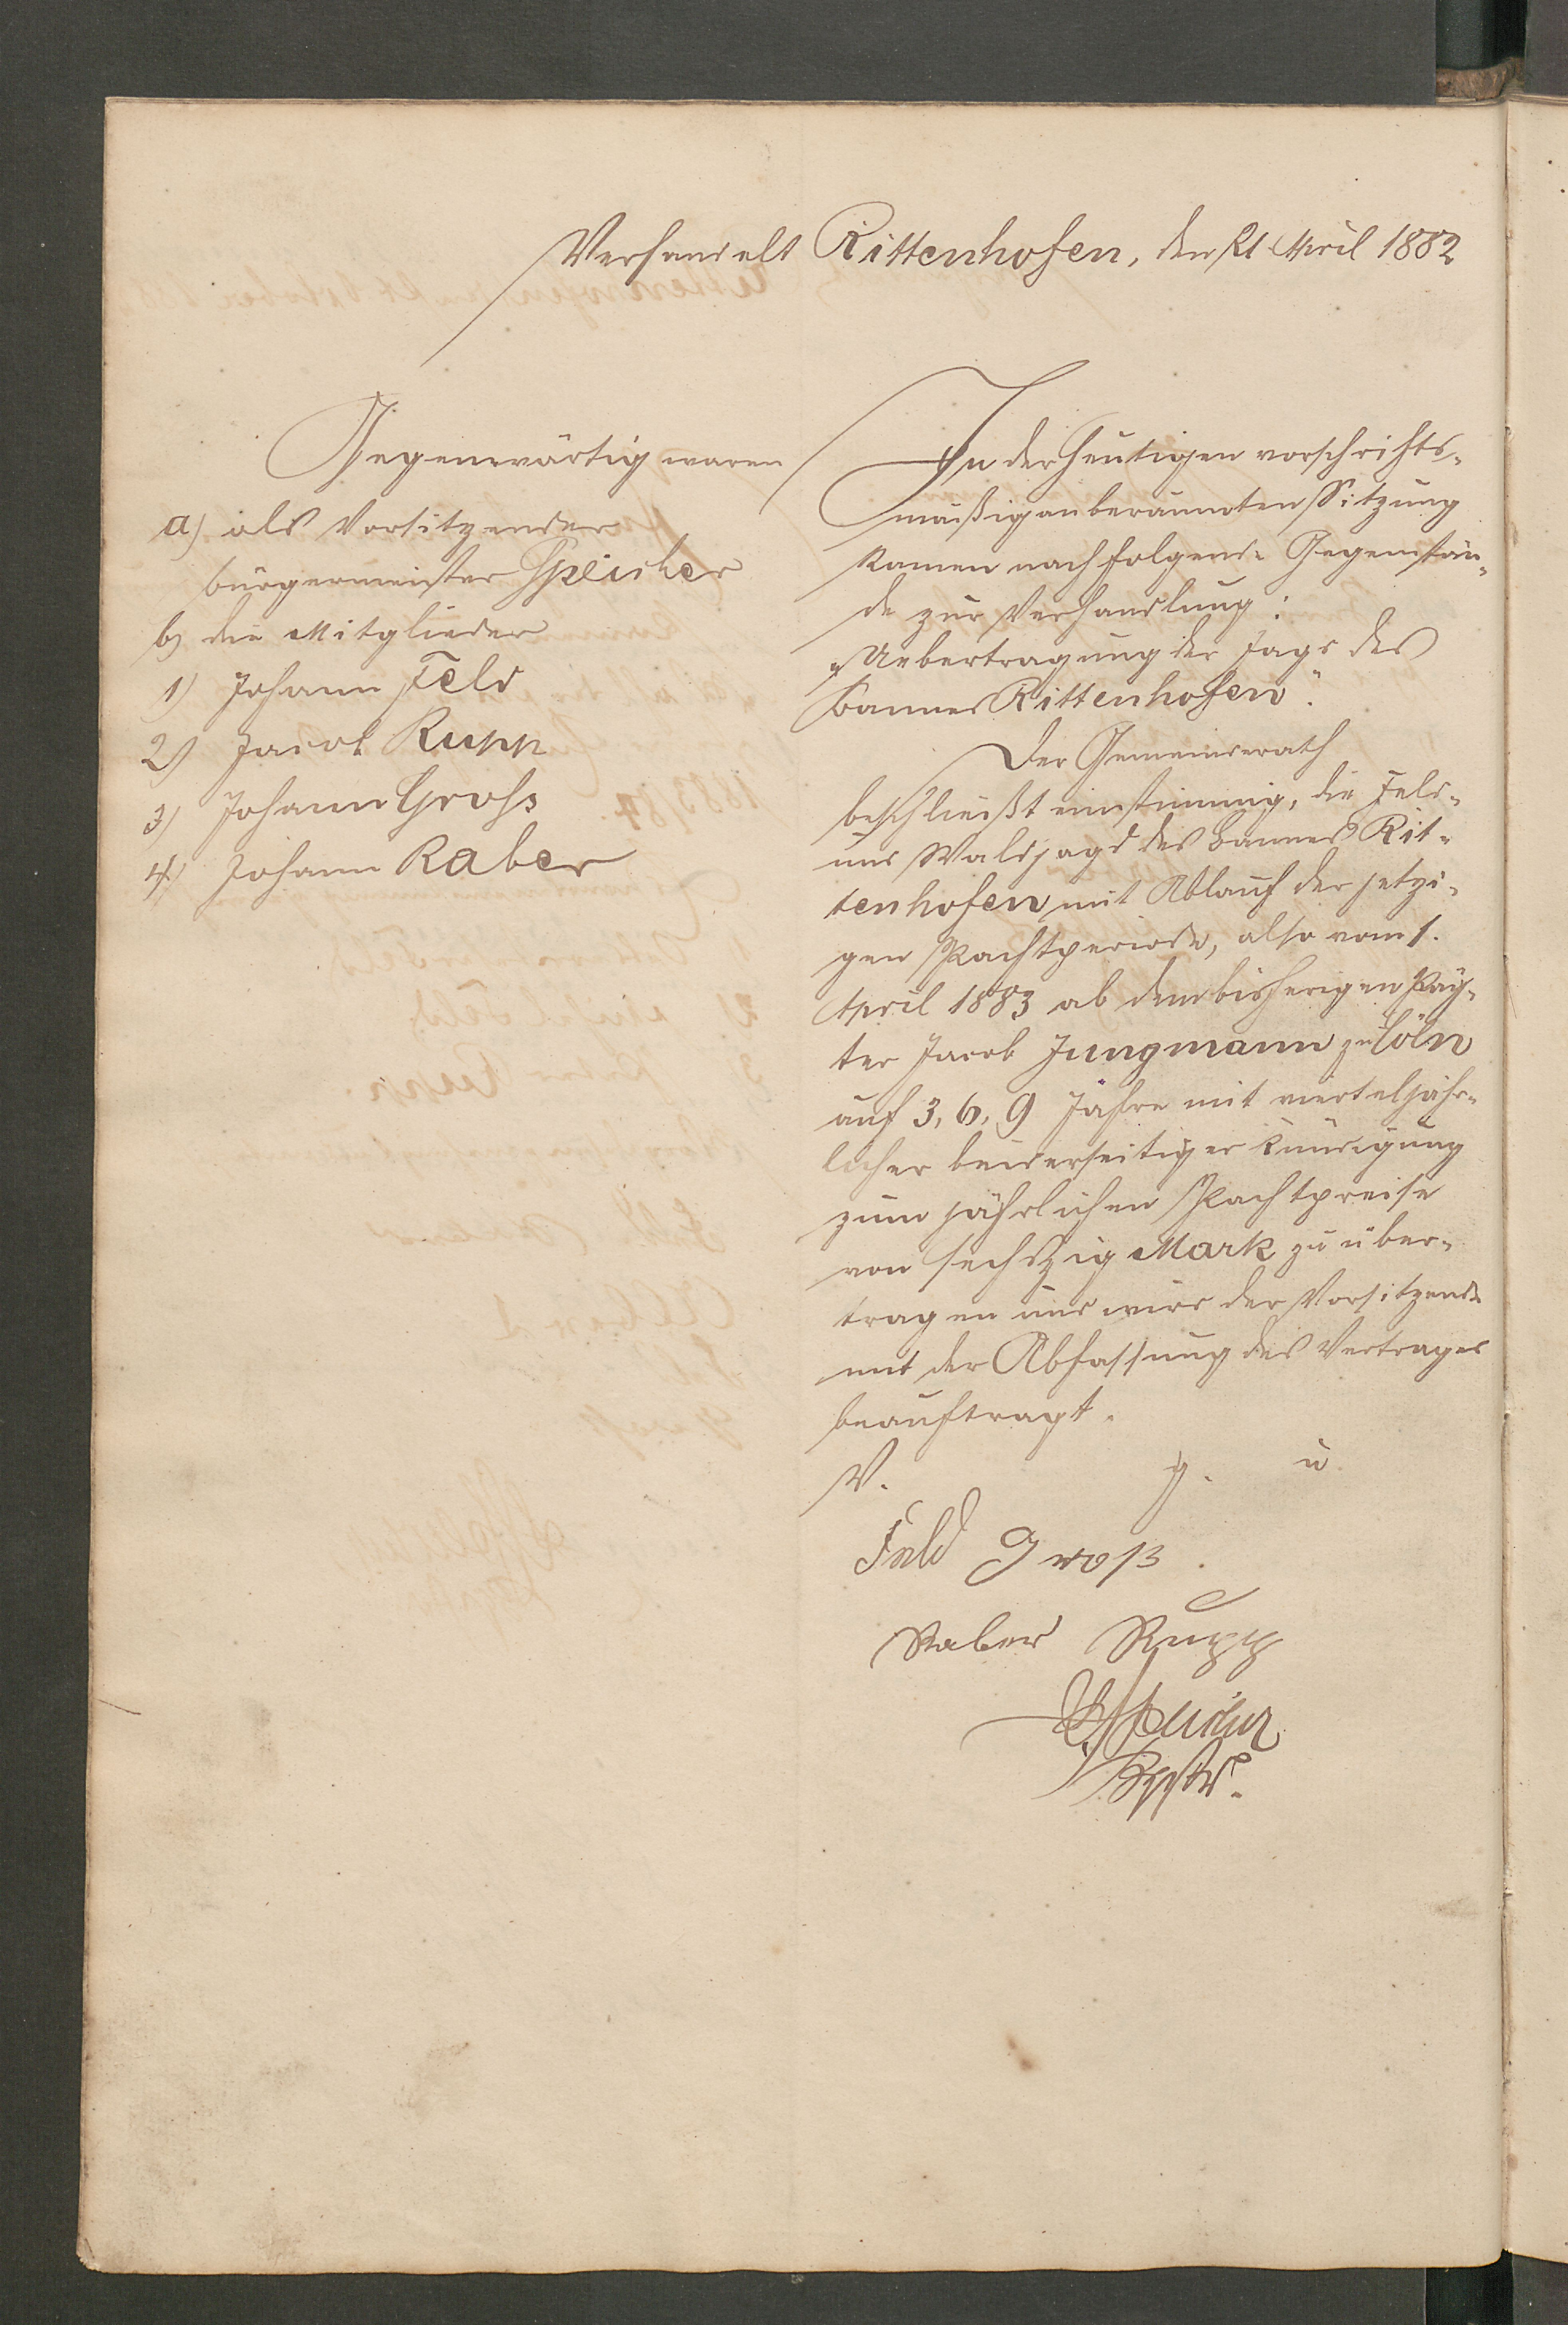 Verhandelt Rittenhofen, den 21 April 1882
Gegenwärtig waren
a) als Vorsitzender
Bürgermeister Speicher
b) die Mitglieder
1) Johann Feld
2) Jacob Rupp
3) Johann Gross
4) Johann Raber
In der heutigen vorschrifts-
mäßig anberaumten Sitzung
kamen nachfolgende Gegenstän-
de zur Verhandlung:
"Uebertragung der Jagd des
Bannes Rittenhofen".
Der Gemeinderath
beschließt einstimmig, die Feld-
und Waldjagd des Bannes Rit-
tenhofen mit Ablauf der jetzi-
gen Pachtperiode, also vom 1.
April 1883 ab dem bisherigen Päch-
ter Jacob Jungmann zu Cöln
auf 3, 6, 9 Jahre mit vierteljähr-
licher beiderseitiger Kündigung
zum jährlichen Pachtpreise
von sechszig Mark zu über-
tragen und wird der Vorsitzende
mit der Abfassung des Vertrages
beauftragt.
V. g. u
Feld Groß.
Raber Rupp
Speicher